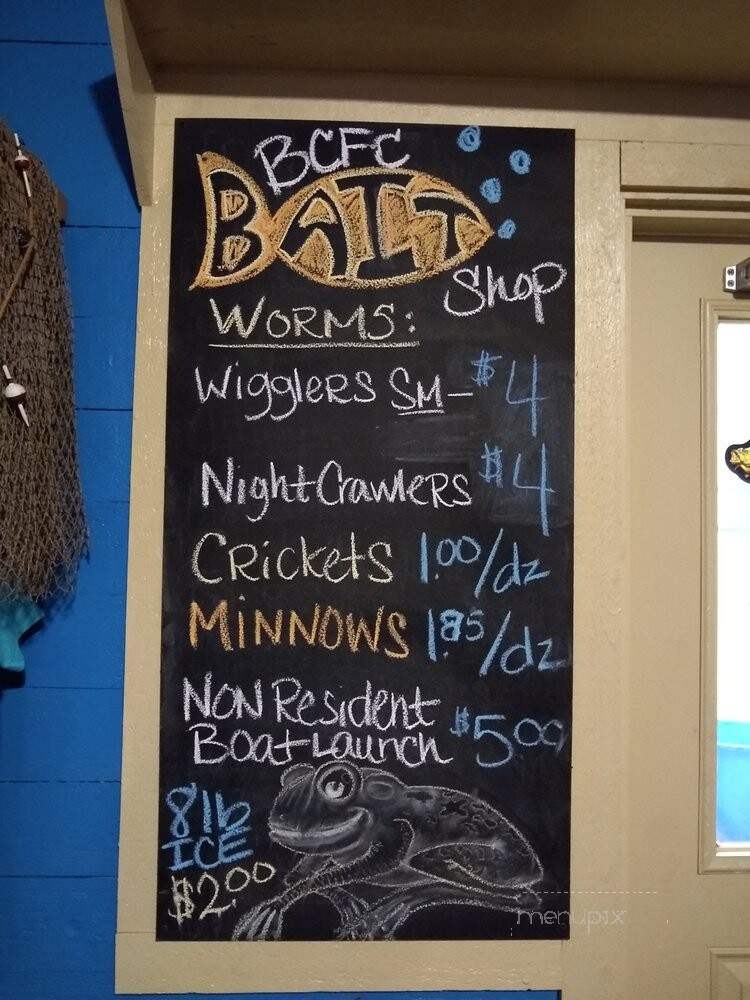 BCFC
BAIT
Shop
WORMS:
Wigglers SM - $4
Night Crawlers $4
Crickets 1.00/dz
MINNOWS 1.85/dz
NON Resident
Boat Launch $5.00
8lb
ICE
$2.00
menupix